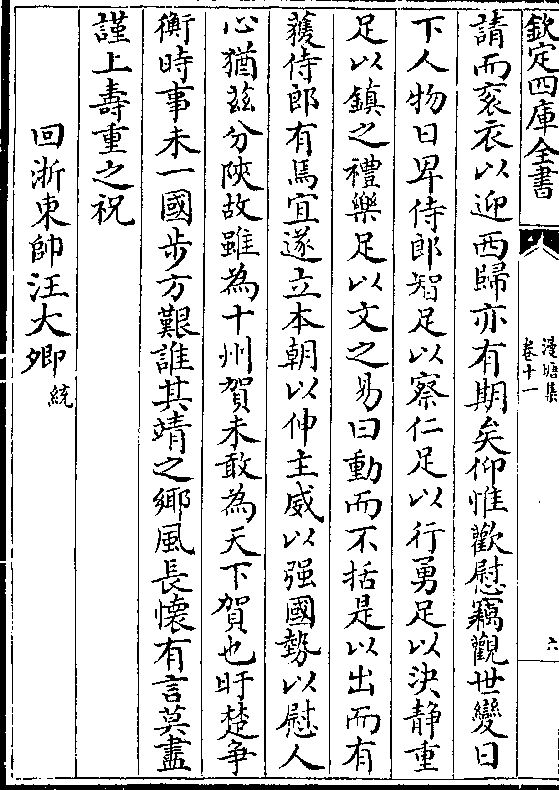 欽定四庫全書
漫塘集
卷十一
六
請而衮衣以迎西歸亦有期矣仰惟歡慰竊觀世變日
下人物日卑侍郎智足以察仁足以行勇足以決静重
足以鎮之禮樂足以文之易曰動而不括是以出而有
獲侍郎有焉宜遂立本朝以伸主威以强國勢以慰人
心猶兹分陜故雖為十州賀未敢為天下賀也盱楚爭
衡時事未一國步方艱誰其靖之鄉風長懷有言莫盡
謹上壽重之祝
回浙東帥汪大卿統